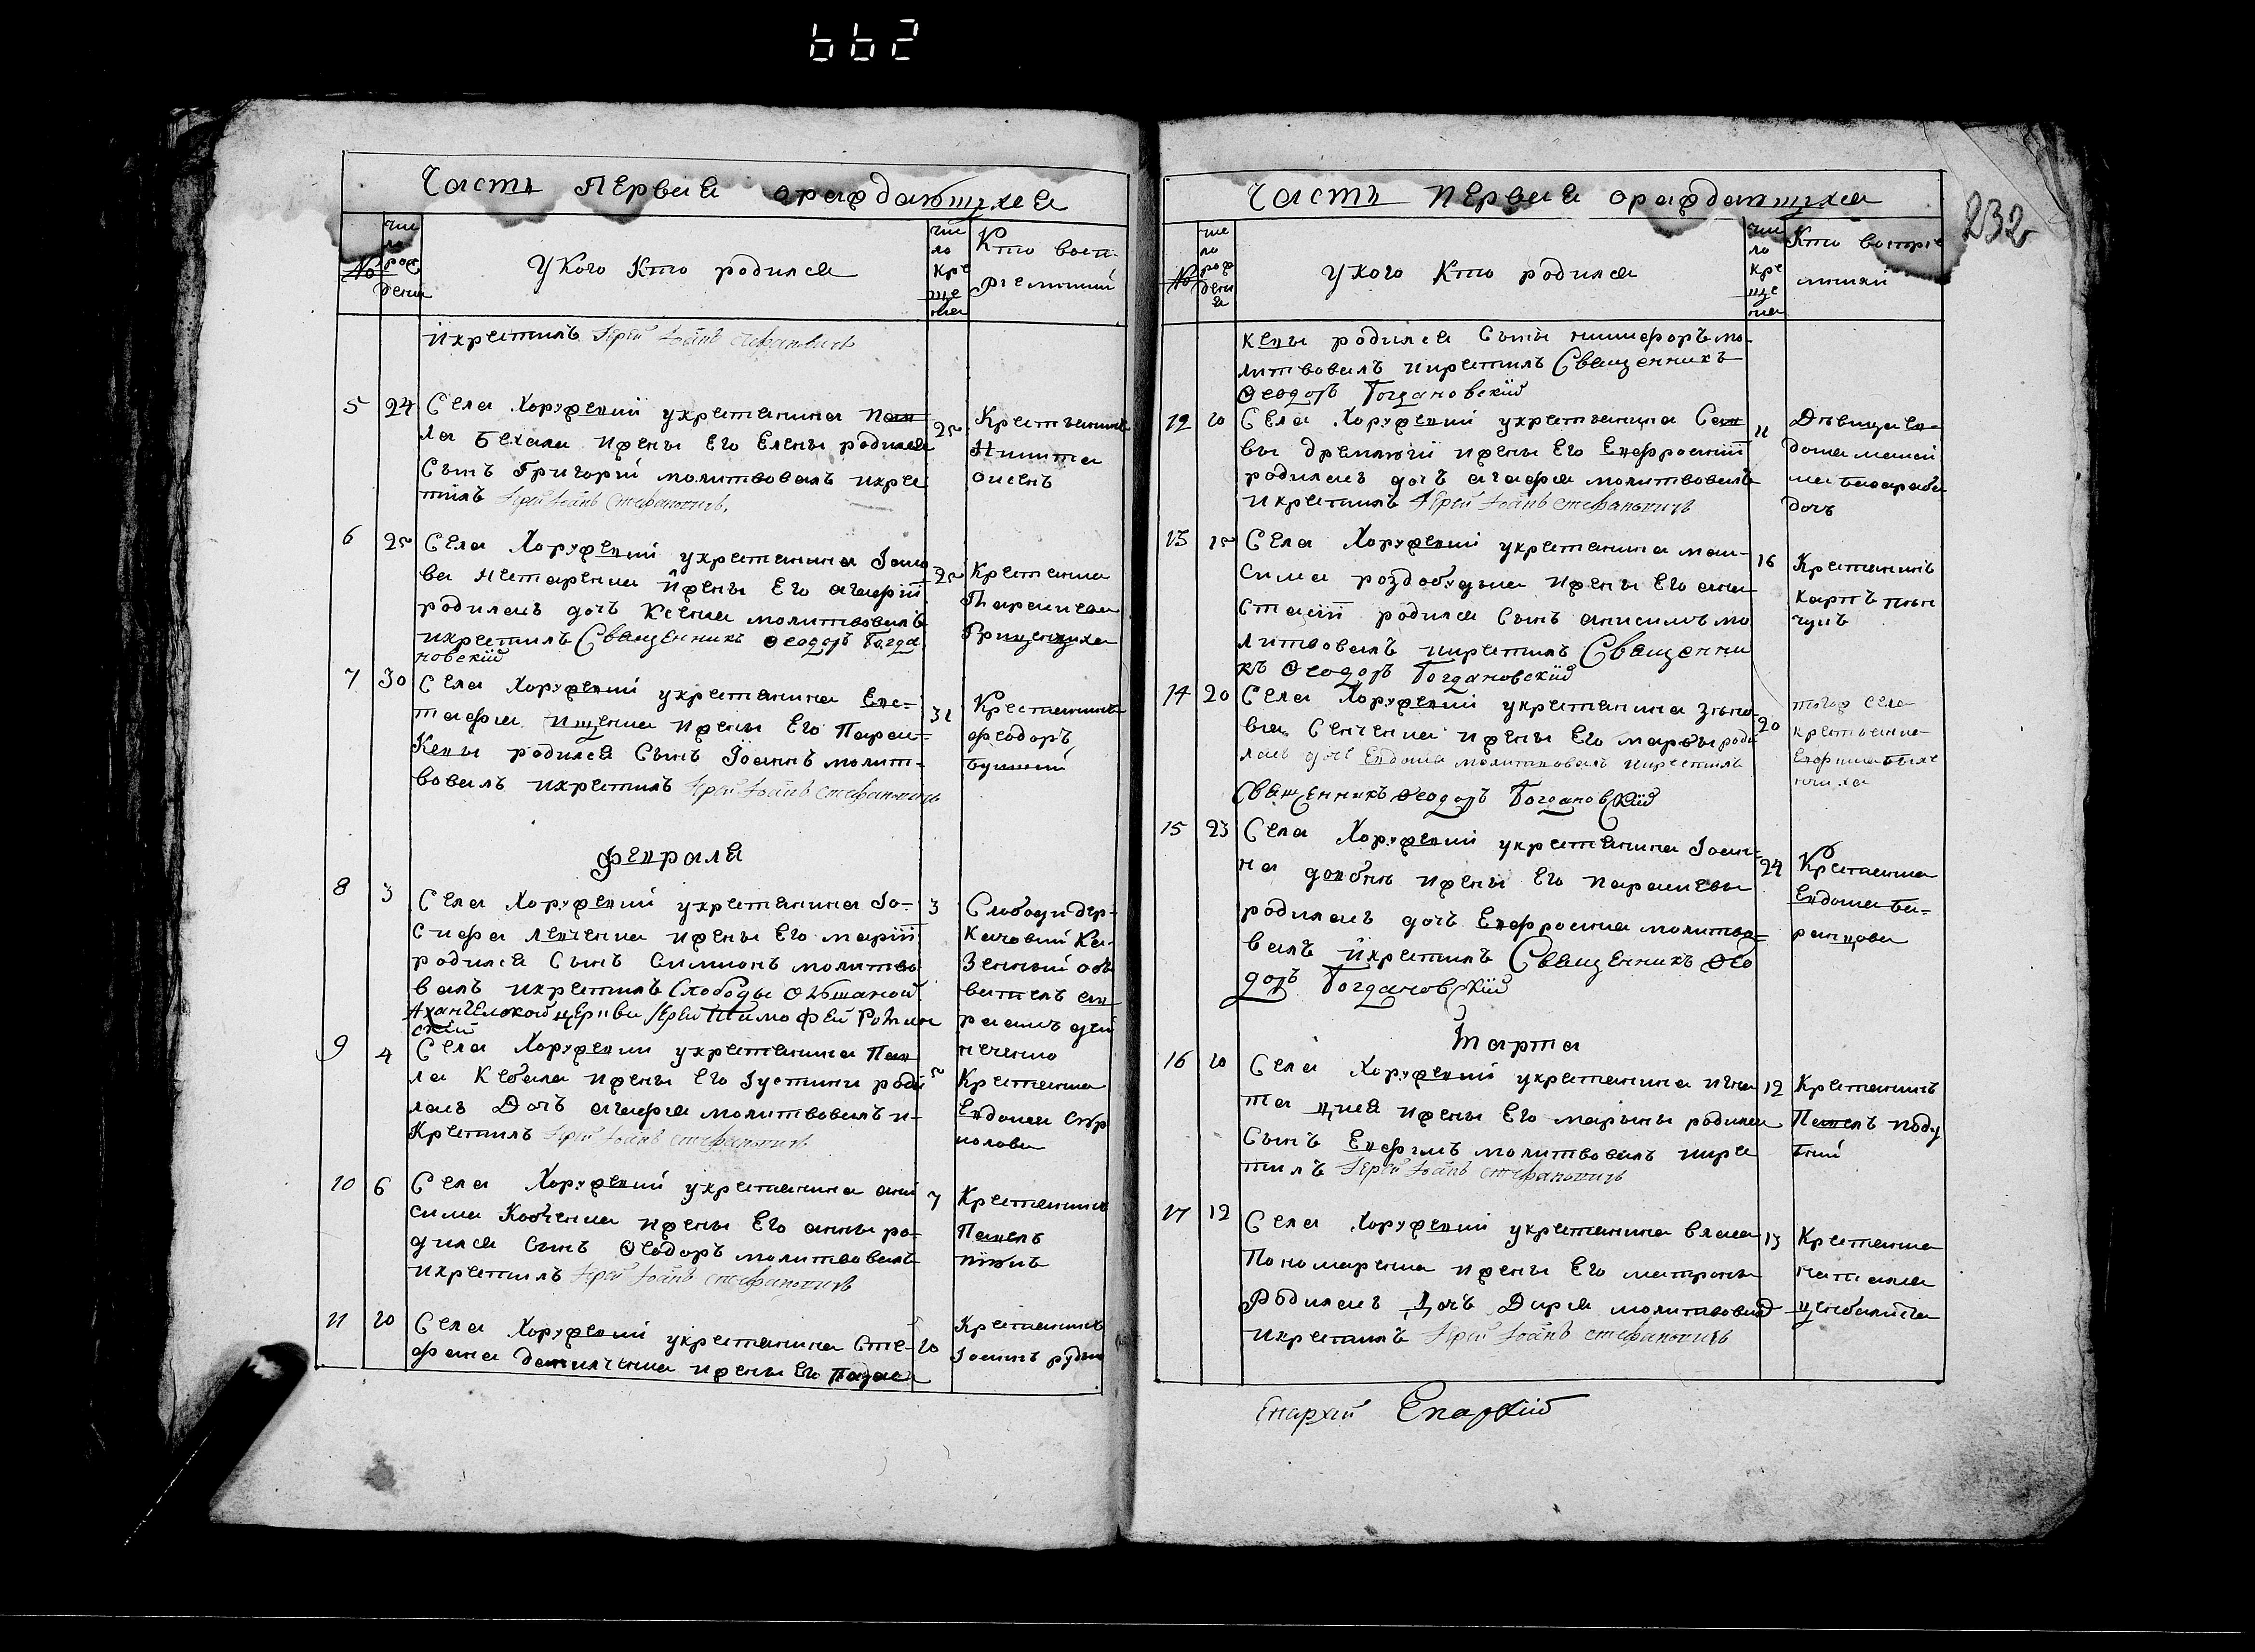 662
232
Часть Первая ораждающихся
No
чис
ло
рож
дения
У Кого Кто родился
чис
ло
кре
ще
ния
Кто восп-
риемники
икрестилъ Іерей Іоаннъ Стефановичъ
5 24 Села Хоружевки укрестянина Пав
ла Бехала ижены Его Елены родился
Сынъ Григорій молитвовалъ икрес
тилъ Іерей Іоаннъ Стефановичъ.
25 Крестьянинъ
Никита
6 25 Села Хоружевки укрестянина Іако
ва Нетаренка ижены Его агафіи
родилась дочь Ксенія молитвовалъ
икрестилъ Священникъ Ѳеодоръ Богда
новскій
25 Крестянка
Параскева
Грищенчиха
7 30 Села Хоружевки укрестянина Евс-
тафія Ищенка ижены Его Парас-
Кевы родился Сынъ Іоаннъ молит-
вовалъ икрестилъ Іерей Іоаннъ Стефановичъ
31 Крестянинъ
феодоръ
февраля
8 3 Села Хоружевки укрестянина Іо-
сифа Левченка ижены Его маріи
родился Сынъ Симионъ молитво
валъ икрестилъ Слободы Ольшаной
Архангелской церкви Іерей Тимофей
3 Слободи Дер-
качовки Ка-
зенный обы
ватель ав
раамъ
9 4 Села Хоружевки укрестянина Пав
ла Кебала ижены Его Іустины роди
лась Дочь агафія молитвовалъ и-
Крестилъ Іерей Іоаннъ Стефановичъ
5 Крестянка
Евдокия
10 6 Села Хоружевки укрестянина ани
сима Кобченка ижены Его анны ро-
дился Сынъ Ѳеодоръ молитвовалъ
икрестилъ Іерей Іоаннъ Стефановичъ
7 Крестянинъ
Павелъ
11 10 Села Хоружевки укрестянина Сте-
фана Данилченка ижены Его Парас
10 Крестянинъ
Іоаннъ
Часть Первая ораждающихся
No
чис
ло
рож
дени
я
у кого Кто родился
чис
ло
кре
ще
ния
Кто восприе
мники
кевы родился Сынъ никифоръ мо-
литвовалъ икрестилъ Священникъ
Ѳеодоръ Богдановскій
12 10 Села Хоружевки укрестянина Сав
вы Дремлюги ижены Его Евфросиніи
родилась дочь агафія молитвовалъ
икрестилъ Іерей Іоаннъ Стефановичъ
11 Дѣвица Ев-
докия
дочь
13 15 Села Хоружевки укрестянина мак-
сима роздобудька ижены Его ана
стасіи родился Сынъ анисимъ мо
литвовалъ икрестилъ Священни
къ Ѳеодоръ Богдановскій
16 Крестянинъ
карпъ
14 20 Села Хоружевки укрестянина Зѣно
вія Сенченка ижены Его марѳы роди
лась дочь Евдокія молитвовалъ икрестилъ
Священникъ Ѳеодоръ Богдановскій
20 тогож села
крестьянка
15 23 Села Хоружевки укрестянина Іоан-
на довбнѣ ижены Его параскевы
родилась дочь Евфросинія молитво-
валъ икрестилъ Священникъ Ѳео
доръ Богдановскій
24 Крестянка
Евдокия Ба-
ранцова
Марта
16 10 Села Хоружевки укрестянина игна
та ция ижены Его марыны родился
Сынъ Евфимъ молитвовалъ икрес
тилъ Іерей Іоаннъ Стефановичъ
12 Крестянинъ
Павелъ Подү
17 12 Села Хоружевки укрестянина власа
Пономаренка ижены Его матроны
Родилась Дочь Дарія молитвовалъ
икрестилъ Іерей Іоаннъ Стефановичъ
13 Крестянка
наталия
Епархій Епархій